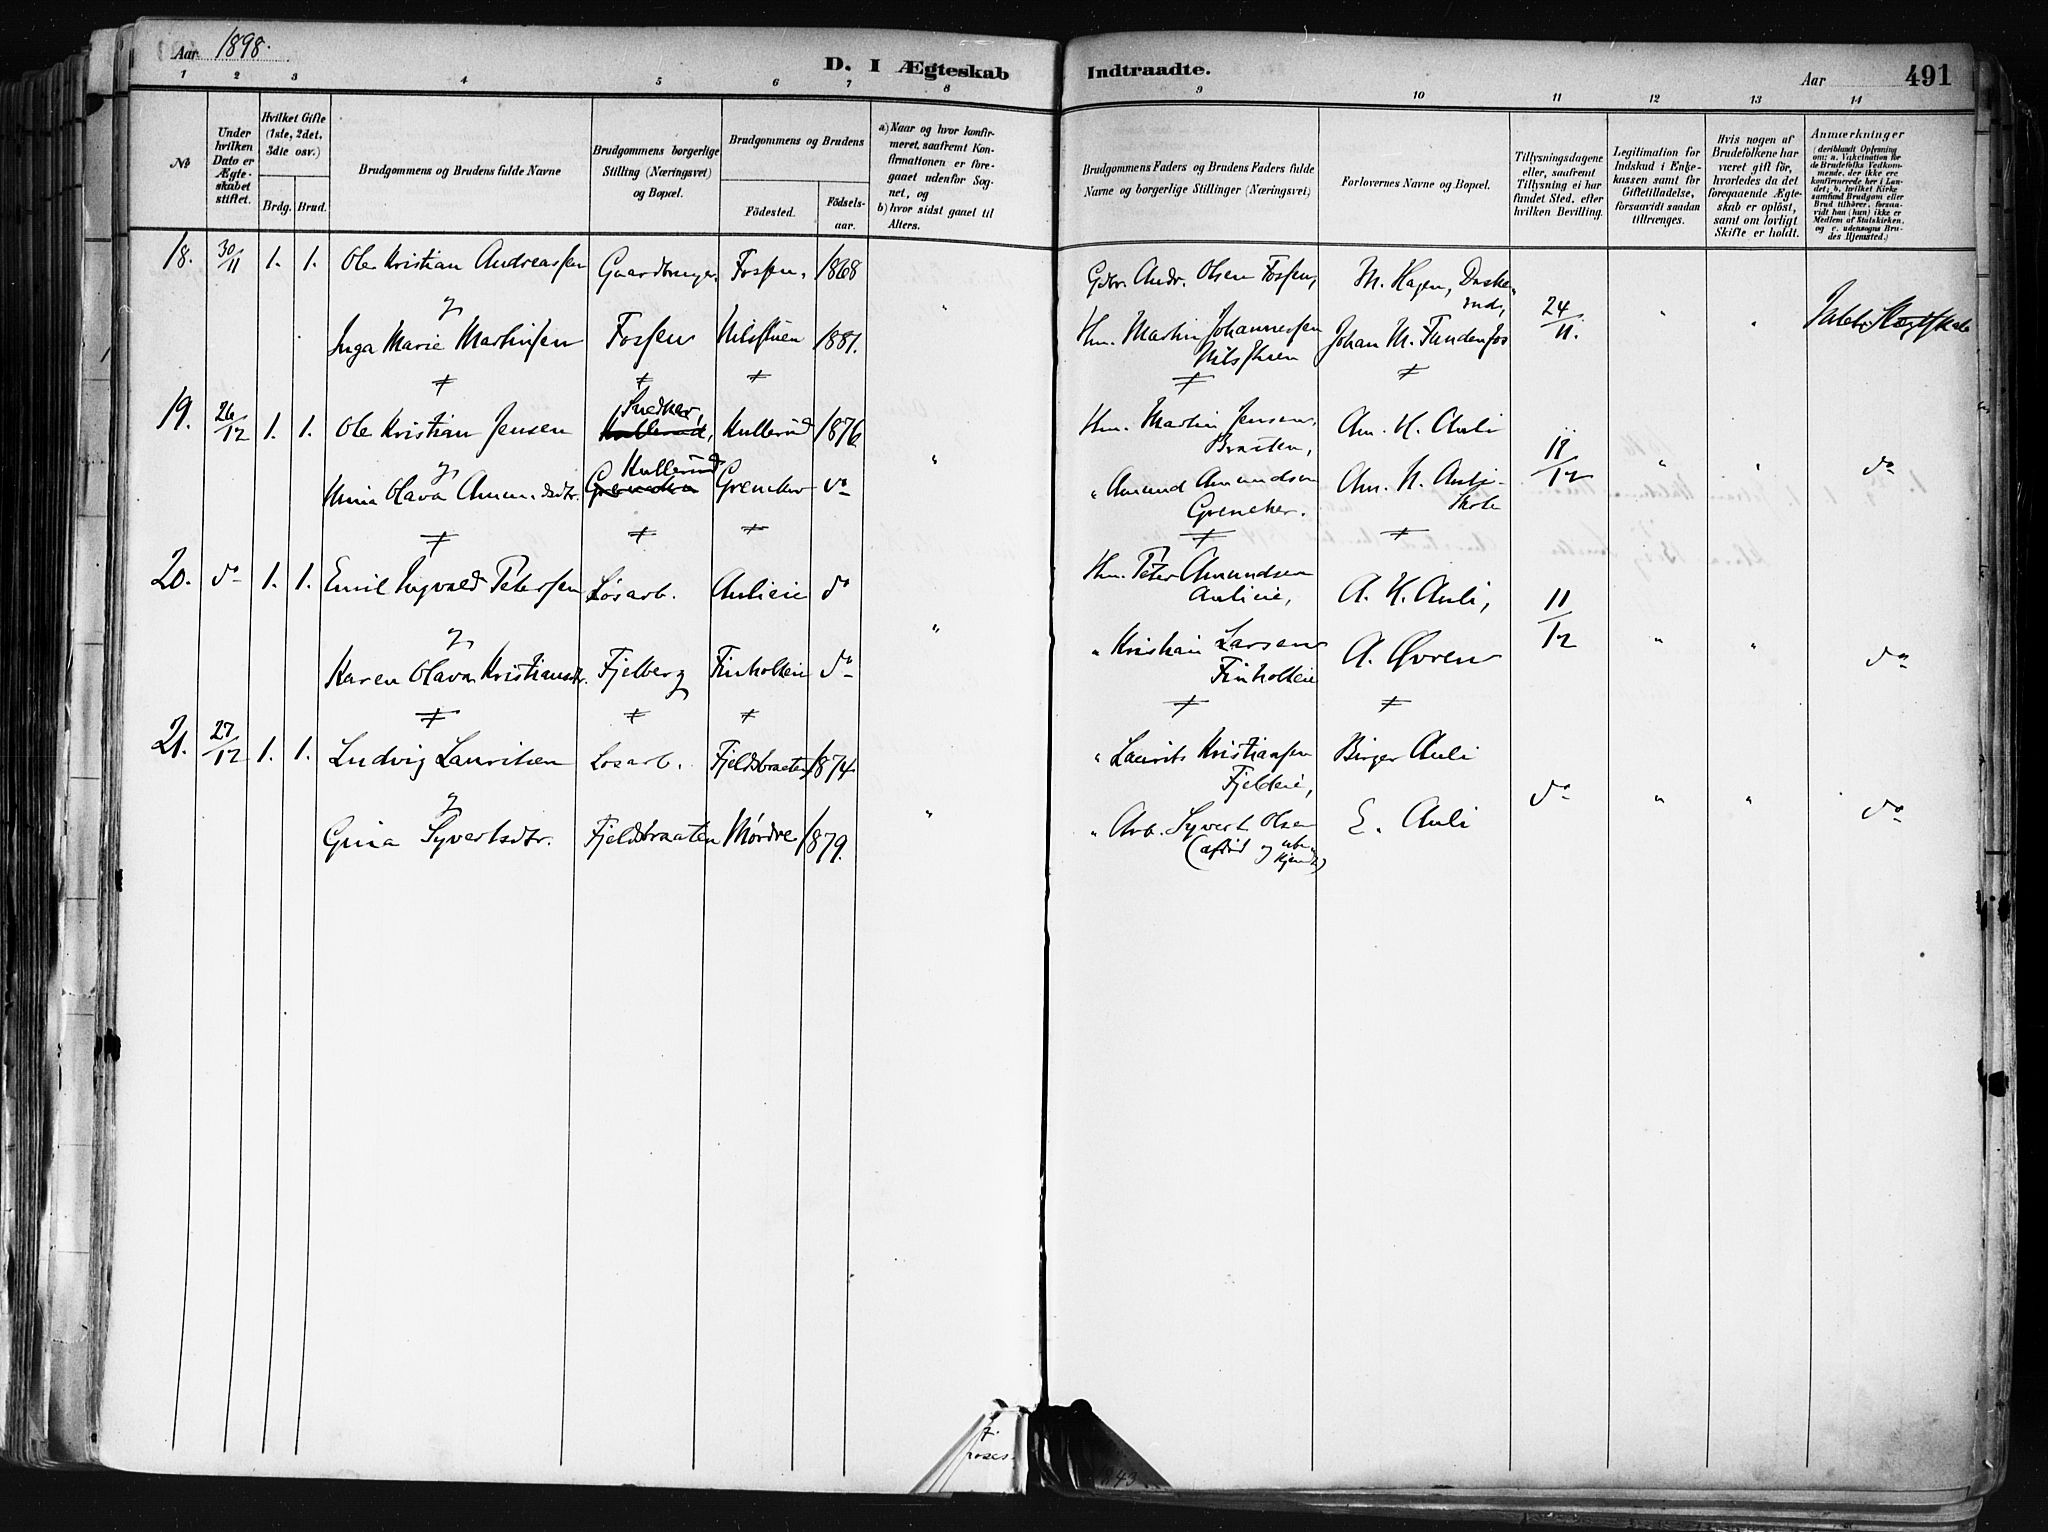 Aar 1898.
D. I Ægteskab Indtraadte.
Aar 491
1 2 3 4 5 6 7 8 9 10 11 12 13 14
No
Under hvilken Dato er Ægteskabet stiftet.
Hvilket Gifte (1ste, 2det, 3die osv.)
Brdg. Brud.
Brudgommens og Brudens fulde Navne
Brudgommens borgerlige Stilling (Næringsvei) og Bopæl.
Brudgommens og Brudens
Födested. Födselsaar.
a) Naar og hvor konfirmeret, saafremt Konfirmationen er foregaaet udenfor Sognet, og
b) hvor sidst gaaet til Alters.
Brudgommens Faders og Brudens Faders fulde Navne og borgerlige Stillinger (Næringsvei).
Forlovernes Navne og Bopæl.
Tillysningsdagene eller, saafremt Tillysning ei har fundet Sted, efter hvilken Bevilling.
Legitimation for Indskud i Enkekassen samt for Giftetilladelse, forsaavidt saadan tiltrænges.
Hvis nogen af Brudefolkene har været gift för, hvorledes da det foregaaende Ægteskab er oplöst, samt om lovligt Skifte er holdt.
Anmærkninger (deriblandt Oplysning om: a. Vakcination for de Brudefolks Vedkommende, der ikke ere konfirmerede her i Landet; b. hvilket Kirkesamfund Brudgom eller Brud tilhörer, forsaavidt han (hun) ikke er Medlem af Statskirken, og c. udensogns Brudes Hjemsted.)
18. 30/11 1. 1. Ole Kristian Andreassen Gaardbruger. Fossen. 1868 Gdbr. Andr. Olsen Fossen, M. Hagen,
og " 24/11. " "
Inga Marie Martinsen Fossen Nilsstuen 1881. Hm. Martin Johannessen Nilsstuen Johan M. Fundenfos
≠ ≠ ≠ ≠ ≠
19. 26/12 1. 1. Ole Kristian Jensen Snedker, Kullerud, Kullerud 1876 Hm. Martin Jensen, Braaten, Am. H. Auli
og " 11/12 " " do
Mina Olava Amundsdtr. Kullerud Grencker Grencker do " Amund Amundsen Grencker. Am. N. Auli-Skole
≠ ≠ ≠ ≠ ≠
20. do 1. 1. Emil Ingvald Petersen Løsarb. Aulieie do Hm. Peter Amundsen Aulieie, A. H. Auli,
og " 11/12 " " do
Karen Olava Kristiansdtr. Fjelberg Finholteie do " Kristian Larsen Finholteie A. Øvren
≠ ≠ ≠ ≠ ≠
21. 27/12 1. 1. Ludvig Lauritsen Løsarb. Fjeldbraaten 1874 " Laurits Kristiansen Fjeldeie, Birger Auli
og " do " " do
Gina Syvertsdtr. Fjeldbraaten Mørdre 1879. " Arb. Syvert Olsen (afdød og ubekjendt) E. Auli